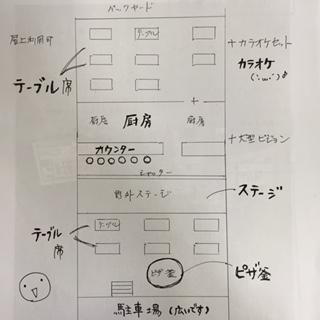 バックヤード
屋上利用可
テーブル
＋カラオケセット
カラオケ
(・ω・)♪
テーブル席
＋
厨房
厨房
厨房
カウンター
＋大型ビジョン
シャッター
野外ステージ
ステージ
テーブル
テーブル席
ピザ釜
ピザ釜
駐車場(広いです)